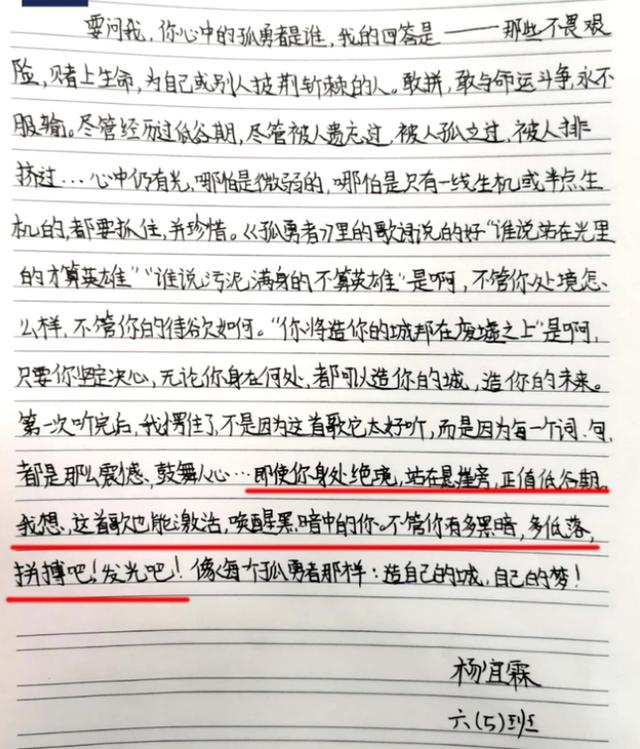 要问我，你心中的孤勇者是谁，我的回答是——那些不畏艰
险，赌上生命，为自己或别人披荆斩棘的人。敢拼，敢与命运斗争，永不
服输。尽管经历过低谷期，尽管被人遗忘过，被人孤立过，被人排
挤过…心中仍有光，哪怕是微弱的，哪怕是只有一线生机或半点生
机的，都要抓住，并珍惜。《孤勇者》里的歌词说的好“谁说站在光里
的才算英雄”“谁说污泥满身的不算英雄”是啊，不管你处境怎
么样，不管你的待欲如何。“你将造你的城邦在废墟之上”是啊，
只要你坚定决心，无论你身在何处，都可以造你的城，造你的未来。
第一次听完后，我愣住了，不是因为这首歌它太好听，而是因为每一个词、句，
都是那么震撼、鼓舞人心…即使你身处绝境，站在悬崖旁，正值低谷期。
我想，这首歌也能激活，唤醒黑暗中的你。不管你有多黑暗，多低落，
拼搏吧！发光吧！像每个孤勇者那样：造自己的城，自己的梦！
杨宜霖
六（5）班